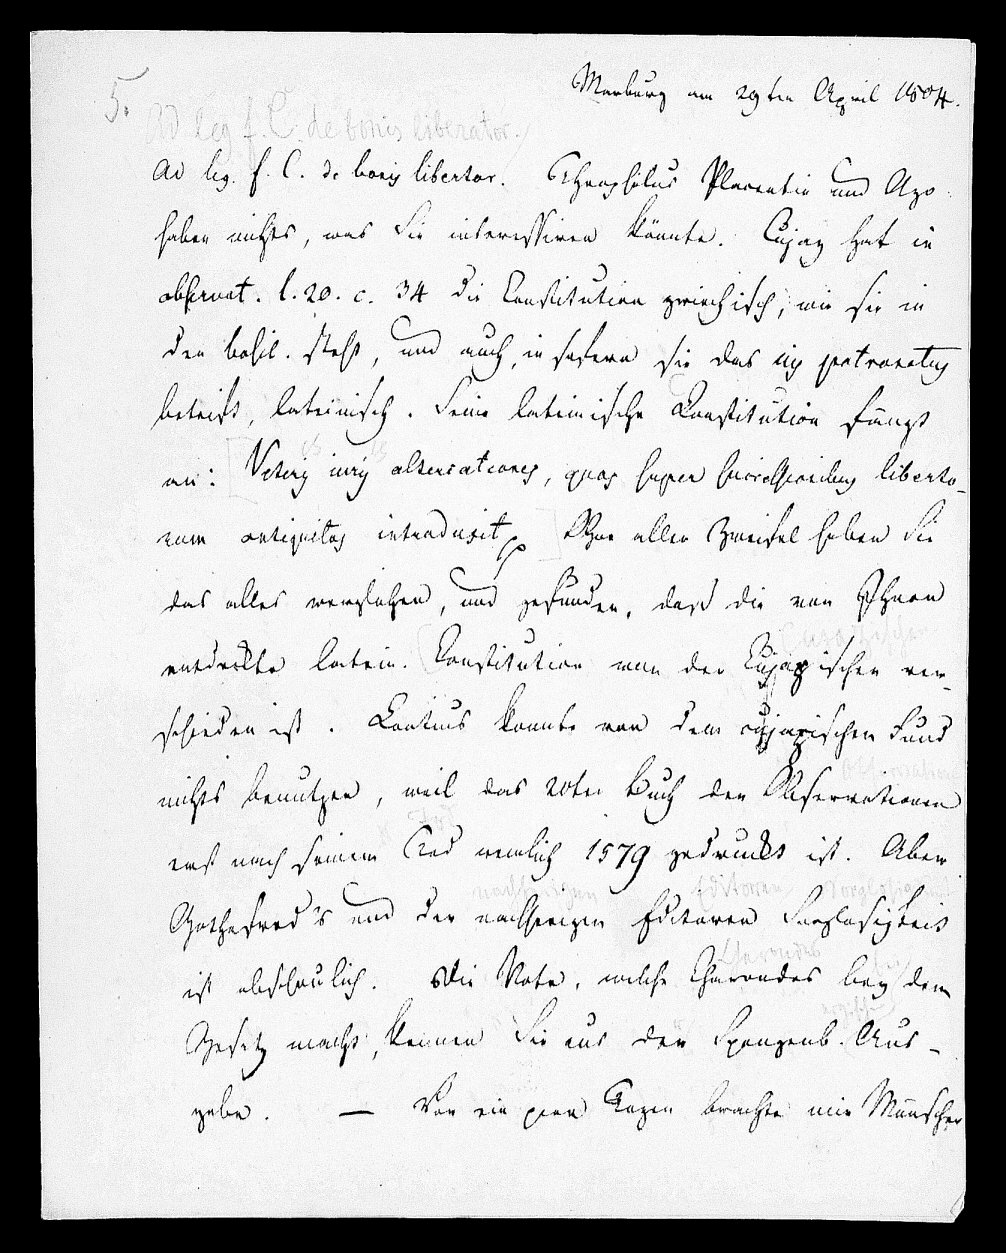 5.
Marburg am 29ten April 1804.
Ad leg f. C. de bonis libertor.
Ad leg. f. C. de bonis libertor. Theophilus Placentin und Azo
haben nichts, was Sie interessiren könnte. Cujaz hat in
observat. l. 20. c. 34 die Constitution griechisch, wie sie in
den basil. steht, und auch, in sofern sie das ius patronatus
betrift, lateinisch. Seine lateinische Constitution fängt
an: Veteris iuris altercationes, quas super successionibus liberto-
rum antiquitas introduxit Ohne allen Zweifel haben Sie
das alles verglichen, und gefunden, daß die von Ihnen
entdeckte latein. Constitution von der Cujazischen ver-
schieden ist. Contius konnte von dem cujazischen Fund
nichts benutzen, weil das 20te Buch der Observationen
erst nach seinem Tod nemlich 1579 gedruckt ist. Aber
Gothofred's und der nachherigen Editoren Sorglosigkeit
ist abscheulich. Die Note, welche Charondas bey dem
Gesetz macht, kennen Sie aus der Spangenb. Aus-
gabe. — Vor ein paar Tagen brachte mir Münscher